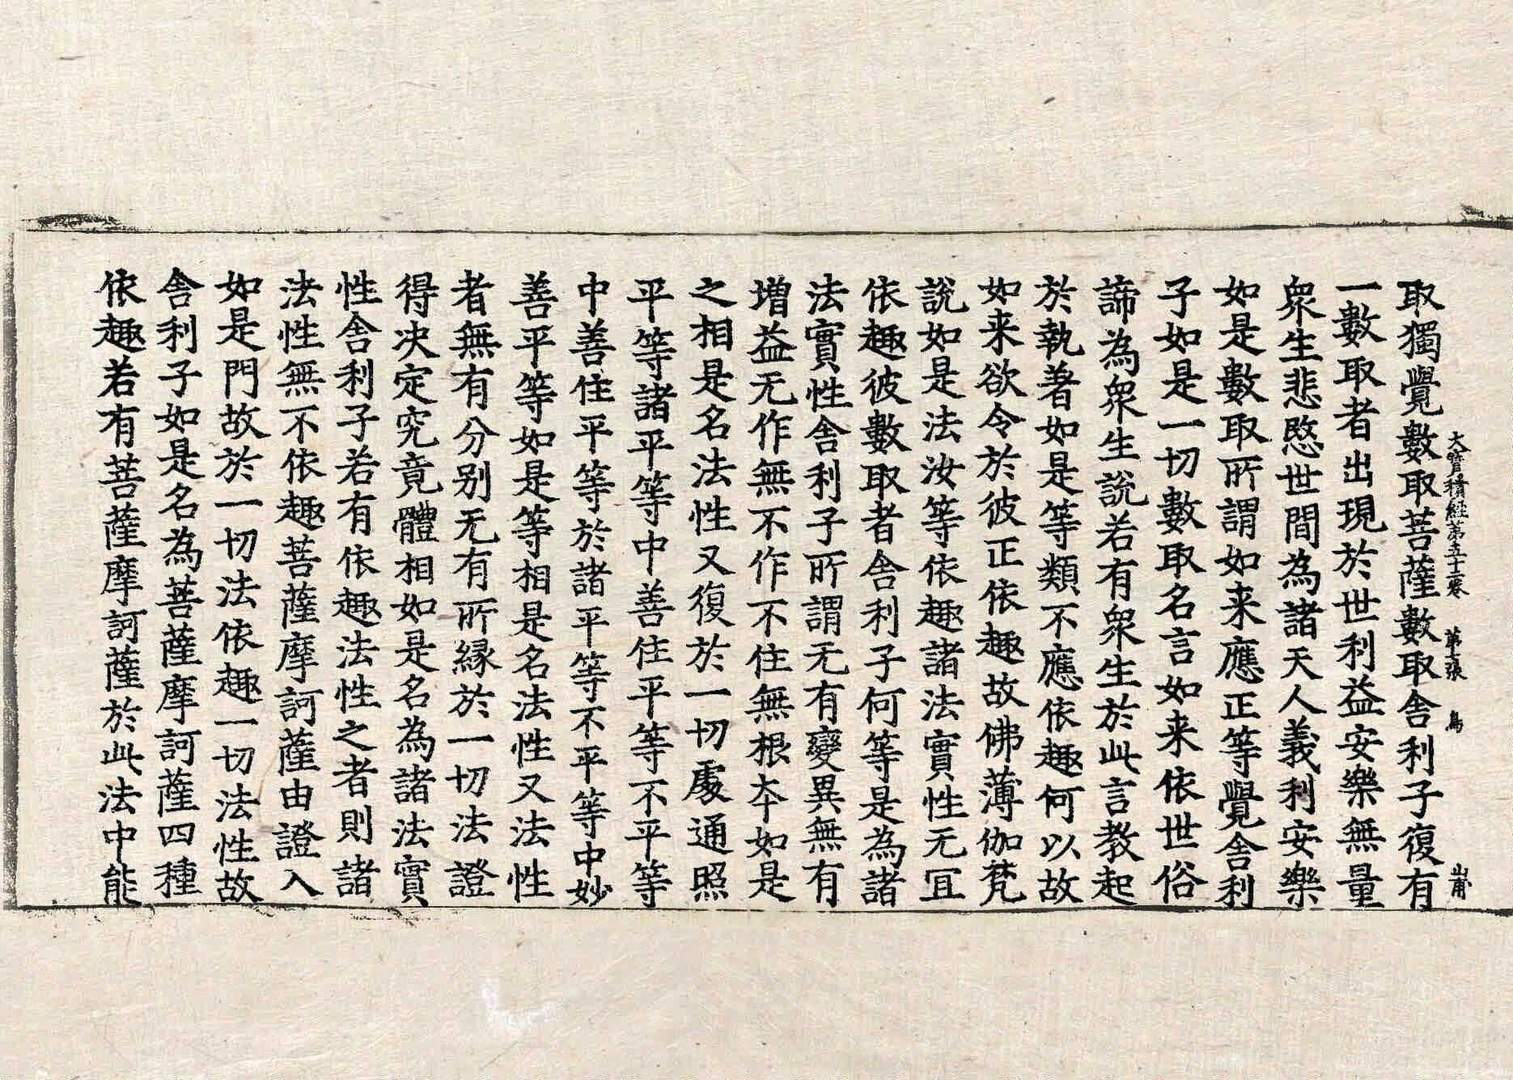 取獨覺數取菩薩數取舍利子復有
大寶積經第五十二卷 第三張 鳥
一數取者出現於世利益安樂無量
衆生悲愍世間為諸天人義利安樂
如是數取所謂如来應正等覺舍利
子如是一切數取名言如来依世俗
諦為衆生說若有衆生於此言教起
於執著如是等類不應依趣何以故
如来欲令於彼正依趣故佛薄伽梵
說如是法汝等依趣諸法實性无冝
依趣彼數取者舍利子何等是為諸
法實性舍利子所謂无有變異無有
增益无作無不作不住無根本如是
之相是名法性又復於一切處通照
平等諸平等中善住平等不平等
中善住平等於諸平等不平等中妙
善平等如是等相是名法性又法性
者無有分別无有所緣於一切法證
得決定究竟體相如是名為諸法實
性舍利子若有依趣法性之者則諸
法性無不依趣菩薩摩訶薩由證入
如是門故於一切法依趣一切法性故
舍利子如是名為菩薩摩訶薩四種
依趣若有菩薩摩訶薩於此法中能